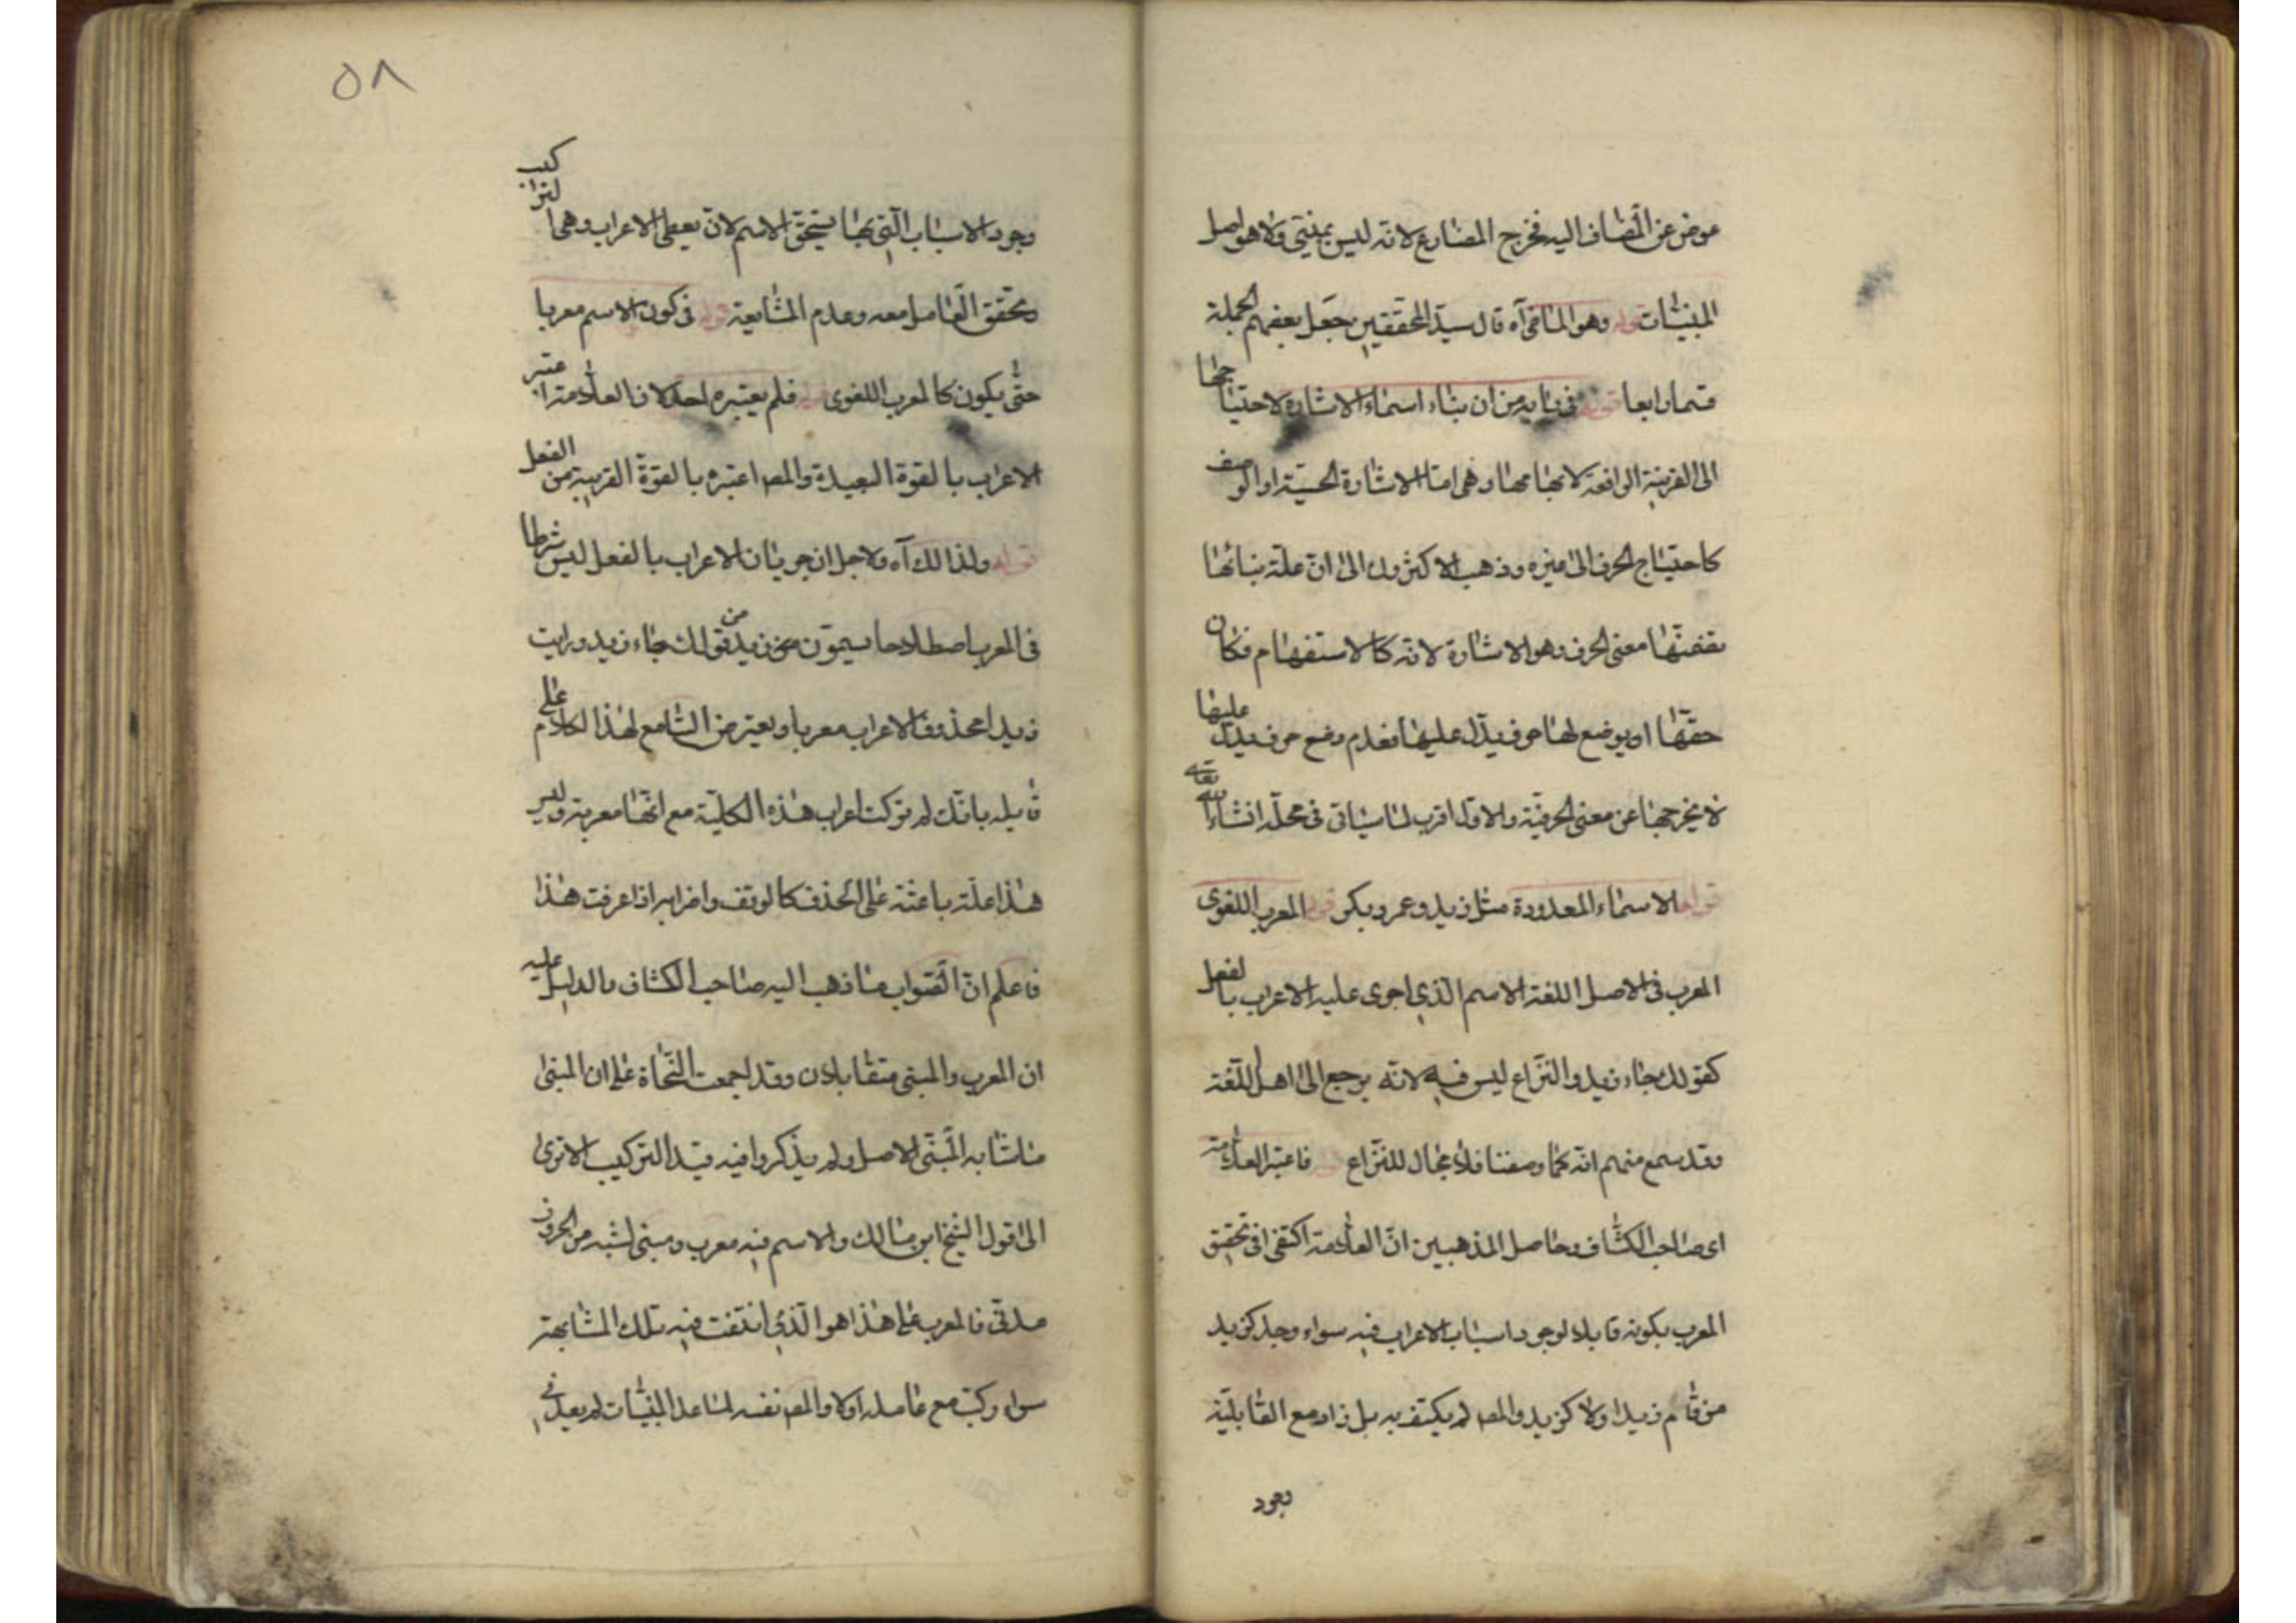 عوض عن المضاف اليه فخرج المضارع لانه ليس بمبنى ولا هو اصل
المبنيات قوله وهو الماضى آه قال سيد المحققين جعل بعضهم الجملة
قسما رابعا قوله فى بابه من ان بناء اسماء الاشارة لاحتياجها
الى القرينة الرافعة لابهامها وهى اما الاشارة الحسية او الوصف
كاحتياج الحرف الى غيره وذهب الاكثرون الى ان علة بنائها
تضمنها معنى الحرف وهو الاشارة لانه كالاستفهام فكان
حقها ان يوضع لها حرف يدل عليها فعدم وضع حرف يدل عليها
لا يخرجها عن معنى الحرفية والاول اقرب لما سياتى فى محله انشاء الله تعالى
قوله الاسماء المعدودة مثل زيد وعمرو بكر قوله المعرب اللغوى
المعرب فى الاصل اللغة الاسم الذى اجرى عليه الاعراب بالفعل
كقولك جاء زيد والنزاع ليس فيه لانه يرجع الى اهل اللغة
وقد سمع منهم انه كما وصفنا فلا مجال للنزاع قوله فاعتبر العلامة
اى صاحب الكشاف وحاصل المذهبين ان العلامة اكتفى فى تحقيق
المعرب بكونه قابلا لوجود اسباب الاعراب فيه سواء وجد كزيد
من قام زيد اولا كزيد والمص لم يكتف به بل زاد مع القابلية
وجود
٥٨
وجود الاسباب التى بها يستحق الاسم لان يعطى الاعراب وهى التركيب
وتحقق العامل معه وعدم المشابهة قوله فى كون الاسم معربا
حتى يكون كالمعرب اللغوى قوله فلم يعتبره احد لان العلامة اعتبر
الاعراب بالقوة البعيدة والمص اعتبره بالقوة القريبة من الفعل
قوله ولذالك آه ولاجل ان جريان الاعراب بالفعل ليس شرطا
فى المعرب اصطلاحا يسمون نحو زيد من قولك جاء زيد ورايت
زيدا محذوف الاعراب معربا ويعترض السامع لهذا الكلام على
قايله بانك لم تركت اعراب هذه الكلية مع انها معربة وليس
هذا علة باعثة على الحذف كالوقف واضرابه اذا عرفت هذا
فاعلم ان الصواب ما ذهب اليه صاحب الكشاف والدليل عليه
ان المعرب والمبنى متقابلان وقد اجمعت النحاة على ان المبنى
ما شابه المبنى الاصل ولم يذكروا فيه قيد التركيب الا ترى
الى قول الشيخ ابن مالك والاسم منه معرب ومبنى لشبه من الحروف
مدنى فالمعرب على هذا هو الذى انتفت فيه تلك المشابهة
سواء ركب مع عامله اولا والمص نفسه لما عد المبنيات لم يعد فى